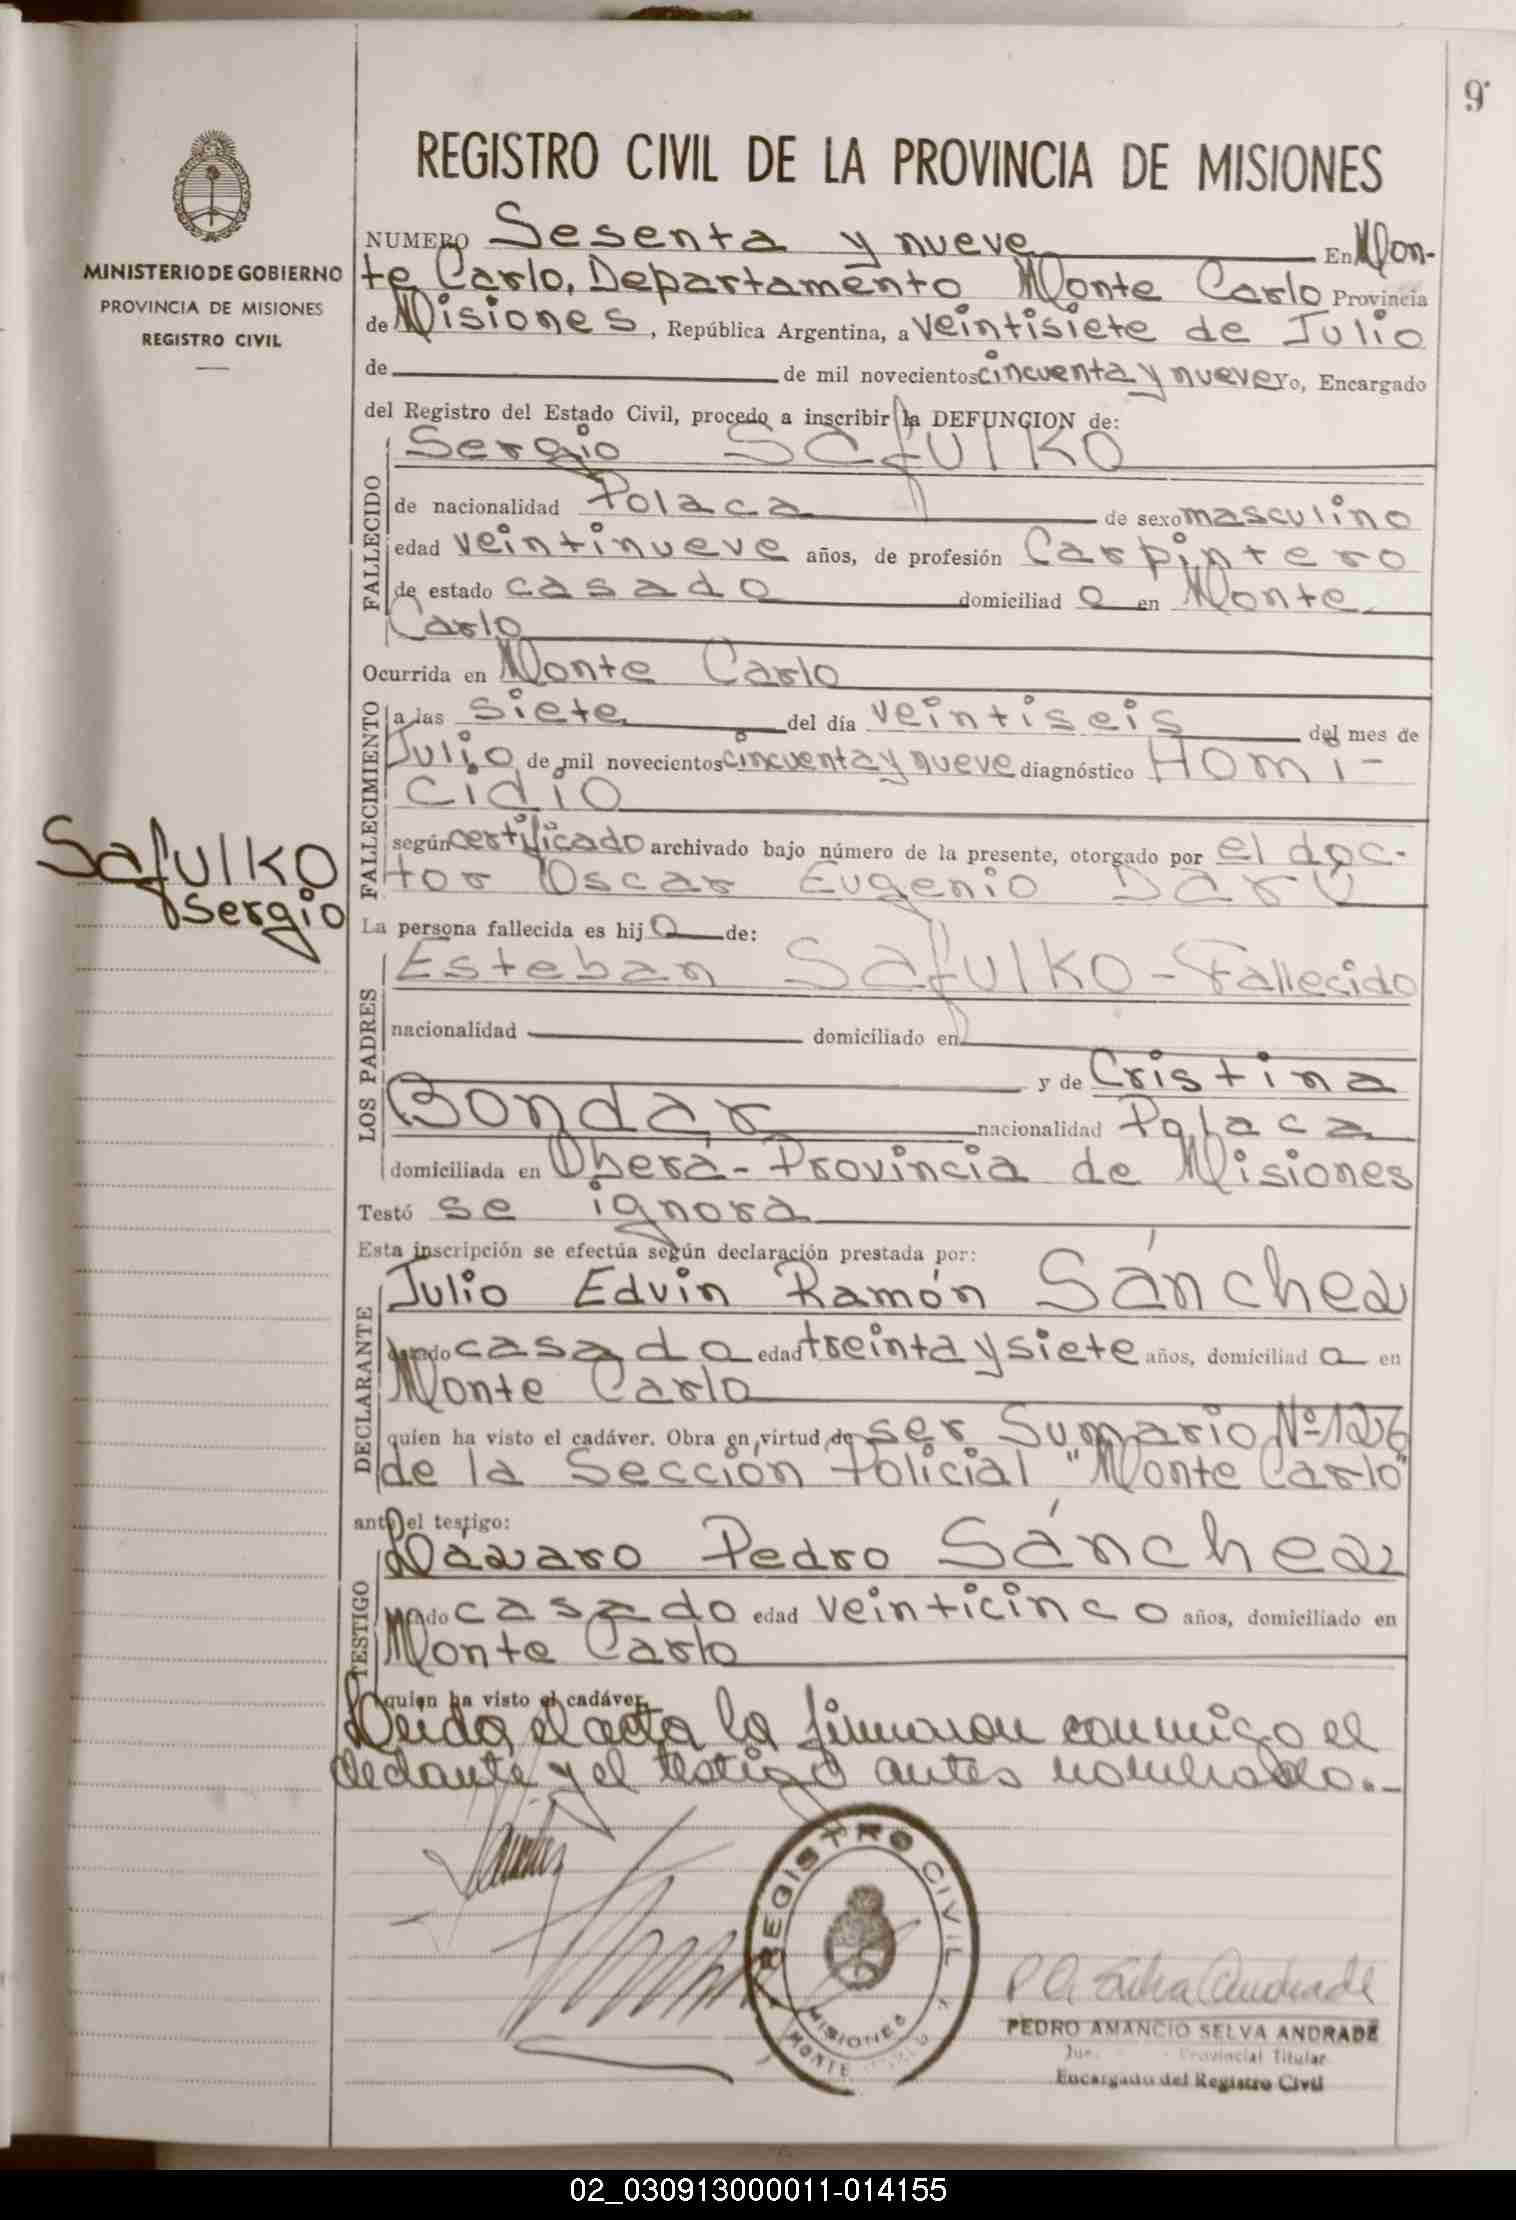 9
MINISTERIO DE GOBIERNO
PROVINCIA DE MISIONES
REGISTRO CIVIL
Safulko
Sergio
REGISTRO CIVIL DE LA PROVINCIA DE MISIONES
NUMERO Sesenta y nueve En Mon-
te Carlo, Departamento Monte Carlo Provincia
de Misiones, República Argentina, a veintisiete de Julio
de de mil novecientos cincuenta y nueve Yo, Encargado
del Registro del Estado Civil, procedo a inscribir la DEFUNCION de:
FALLECIDO
Sergio Safulko
de nacionalidad Polaca de sexo masculino
edad veintinueve años, de profesión Carpintero
de estado casado domiciliad o en Monte
Carlo
Ocurrida en Monte Carlo
FALLECIMIENTO
a las siete del día veintiseis del mes de
Julio de mil novecientos cincuenta y nueve diagnóstico Homi-
cidio
según certificado archivado bajo número de la presente, otorgado por el doc-
tor Oscar Eugenio Darú
La persona fallecida es hij o de:
LOS PADRES
Esteban Safulko - Fallecido
nacionalidad domiciliado en
y de Cristina
Bondar nacionalidad Polaca
domiciliada en Oberá - Provincia de Misiones
Testó se ignora
Esta inscripción se efectúa según declaración prestada por:
DECLARANTE
Julio Edvin Ramón Sánchez
casado edad treinta y siete años, domiciliad o en
Monte Carlo
quien ha visto el cadáver. Obra en virtud de ser Sumario Nº 126
de la Sección Policial "Monte Carlo"
ante el testigo:
TESTIGO
Lázaro Pedro Sánchez
casado edad veinticinco años, domiciliado en
Monte Carlo
quien ha visto el cadáver.
Leida el acta la firmaron conmigo el
declante y el testigo antes nombrado.-
REGISTRO CIVIL
MISIONES
MONTE
P A Selva Andrade
PEDRO AMANCIO SELVA ANDRADE
Provincial Titular
Encargado del Registro Civil
02_030913000011-014155